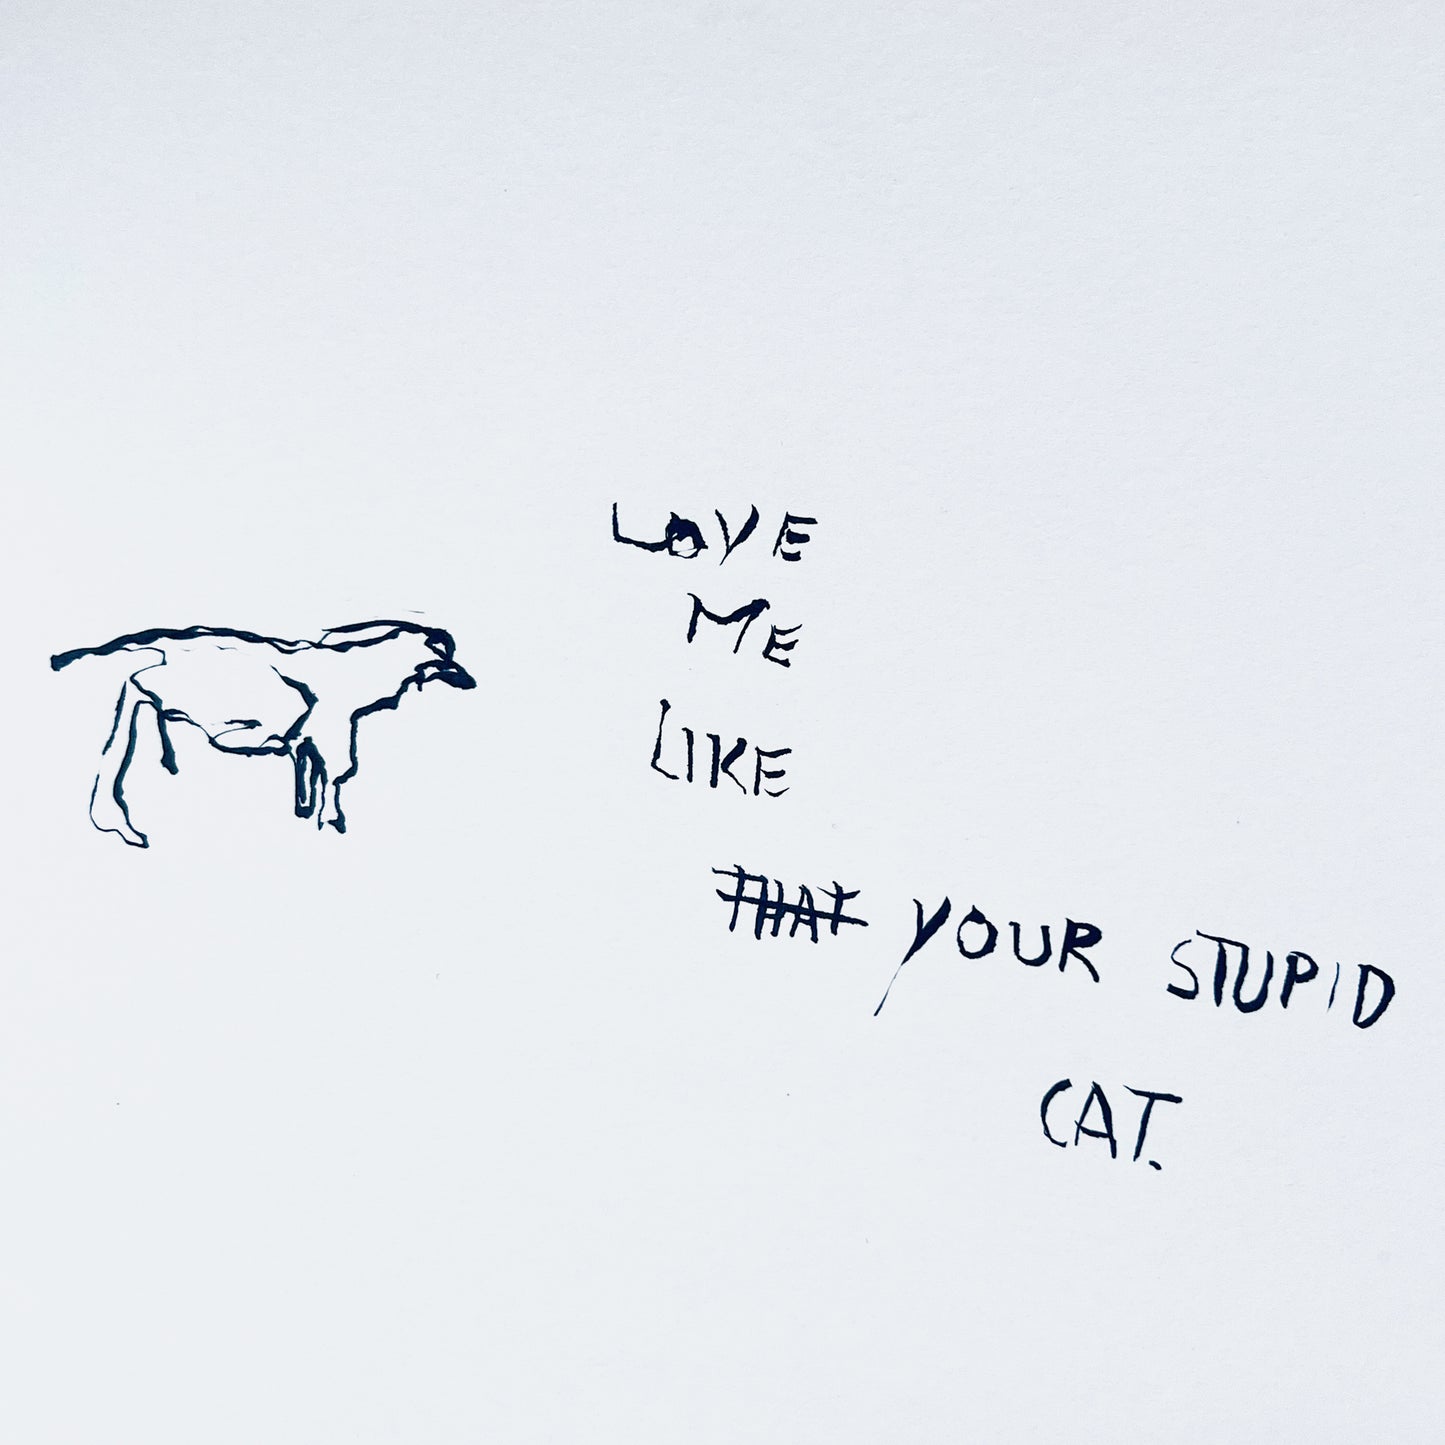 LOVE
ME
LIKE
THAT YOUR STUPID
CAT.